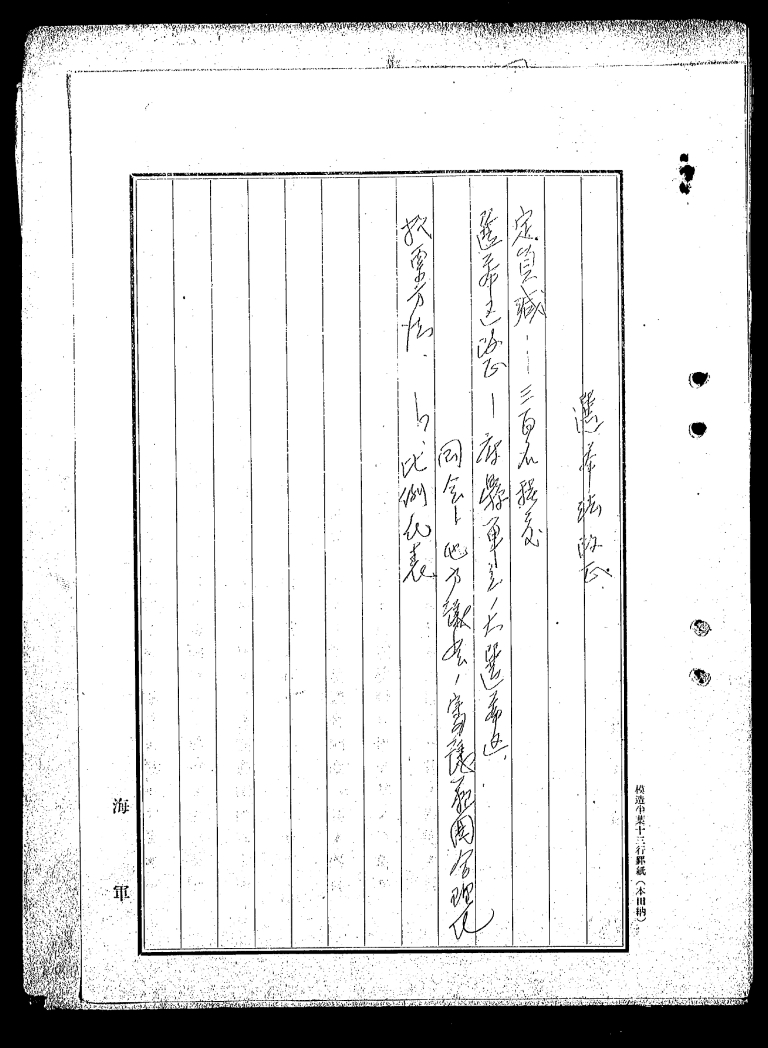 選挙法改正
定員減……三百名程度
選挙区改正―府縣単位ノ大選挙区
国会ト地方議会ノ審議範囲合理化
投票方法. 比例代表
海軍
模造半葉十三行罫紙(本田納)